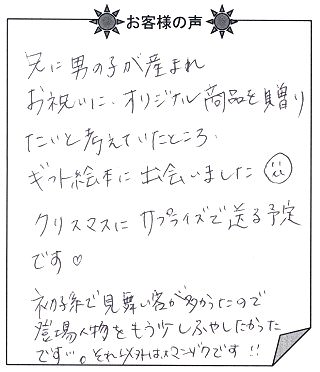 お客様の声
兄に男の子が産まれ
お祝いに、オリジナル商品を贈り
たいと考えていたところ、
ギフト絵本に出会いました
クリスマスにサプライズで送る予定
です♡
初子で見舞い客が多かったので
登場人物をもう少しふやしたかった
です…。それ以外はマンゾクです!!